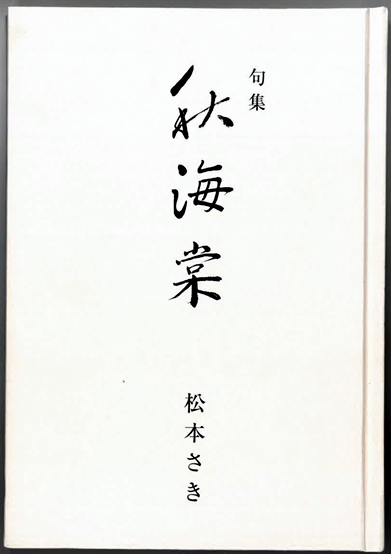 句集
秋海棠
松本さき